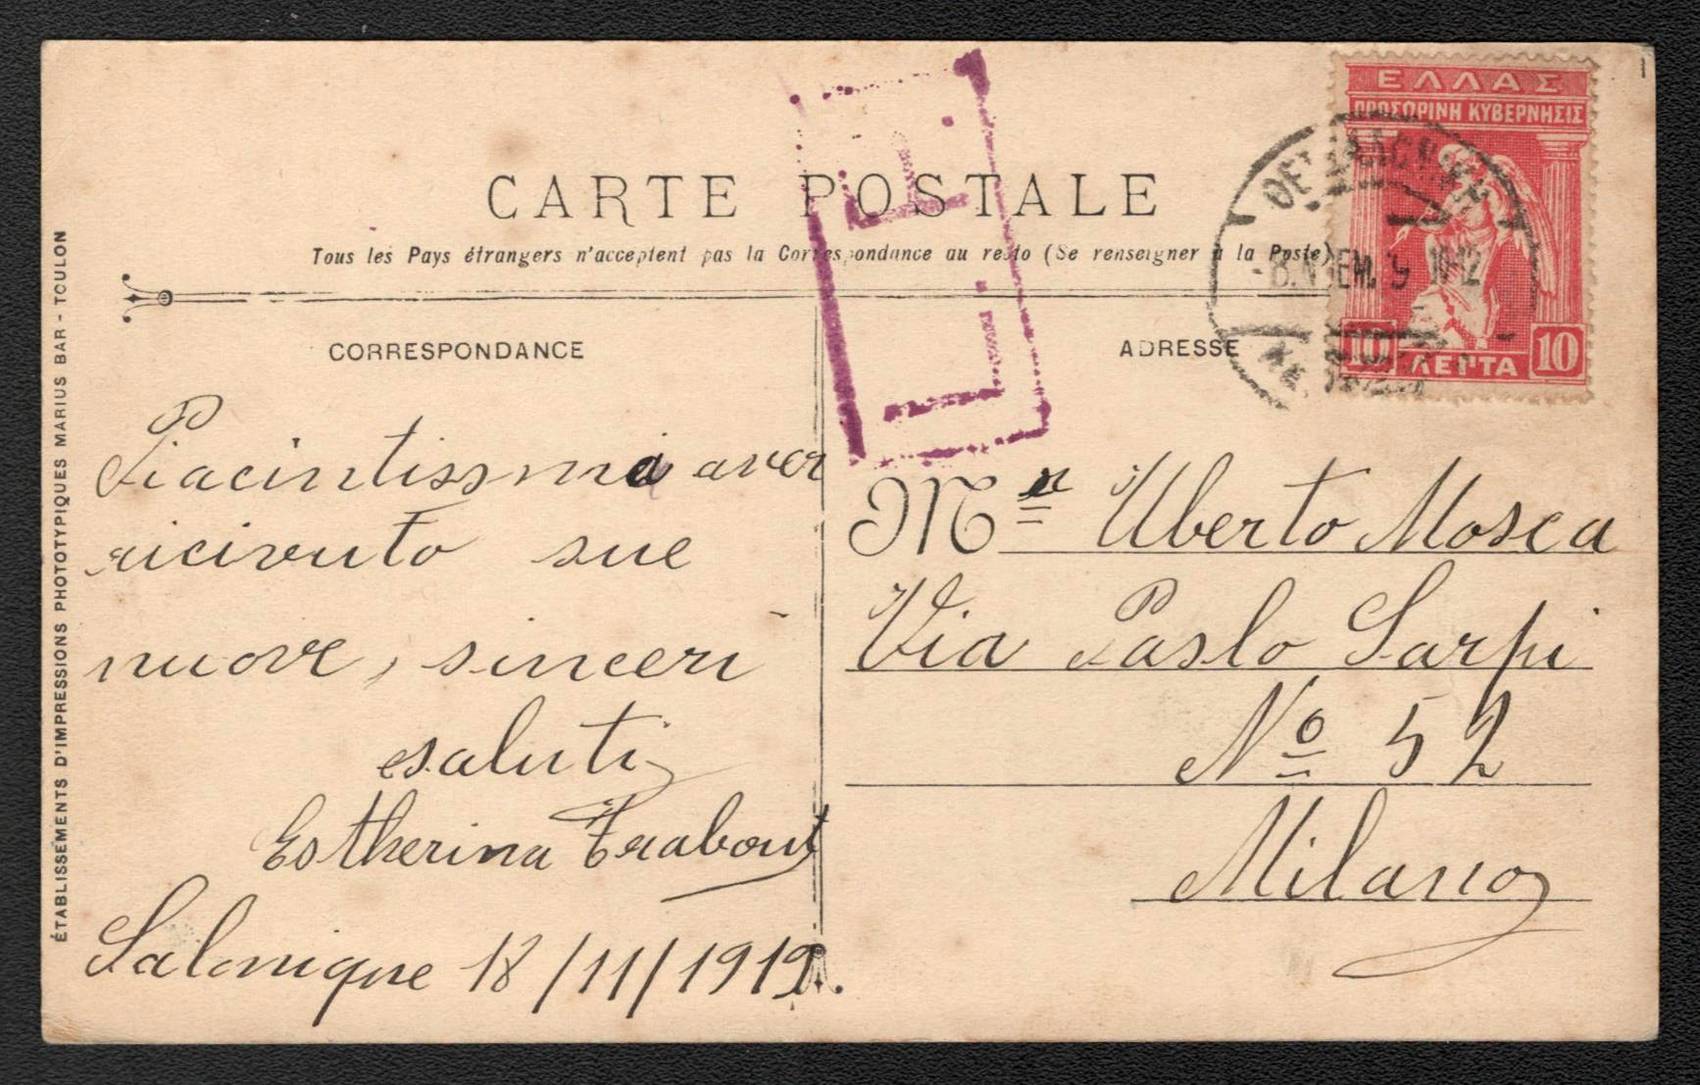 ΕΛΛΑΣ
ΠΡΟΣΩΡΙΝΗ ΚΥΒΕΡΝΗΣΙΣ
10 ΛΕΠΤΑ 10
CARTE POSTALE
Tous les Pays étrangers n'acceptent pas la Correspondance au recto (Se renseigner à la Poste)
CORRESPONDANCE
ADRESSE
Piacintissma aver
ricivuto sue
nuove, sinceri
saluti
Estherina
Salonique 18/11/1919.
Mr Uberto Mosca
Via Paslo Sarpi
No 52
Milano
ÉTABLISSEMENTS D'IMPRESSIONS PHOTOTYPIQUES MARIUS BAR - TOULON